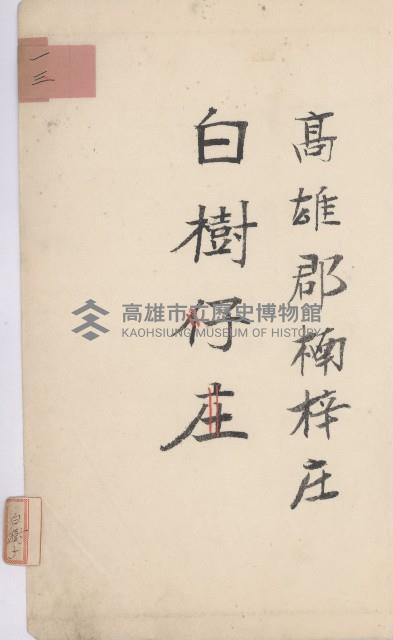 高雄郡楠梓庄
白樹仔庄
一三
高雄市立歷史博物館
KAOHSIUNG MUSEUM OF HISTORY
白樹